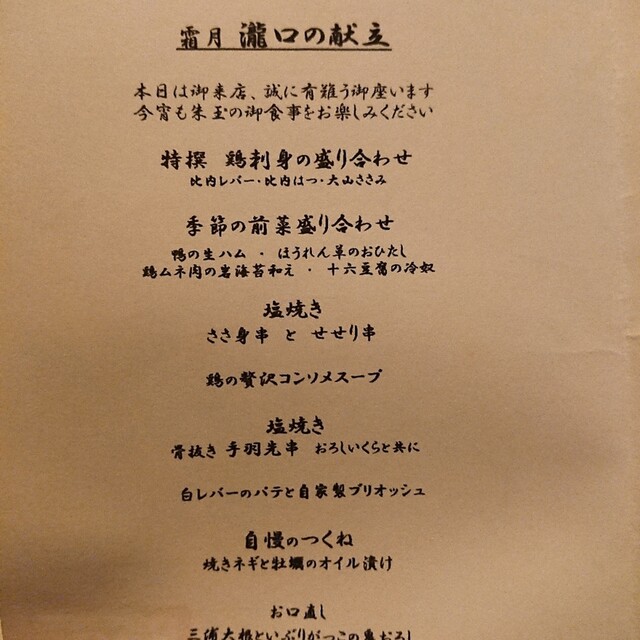 霜月 瀧口の献立
本日は御来店、誠に有難う御座います
今宵も朱玉の御食事をお楽しみください
特撰 鶏刺身の盛り合わせ
比内レバー・比内はつ・大山ささみ
季節の前菜盛り合わせ
鴨の生ハム ・ ほうれん草のおひたし
鶏ムネ肉の岩海苔和え ・ 十六豆腐の冷奴
塩焼き
ささ身串 と せせり串
鶏の贅沢コンソメスープ
塩焼き
骨抜き 手羽先串 おろしいくらと共に
白レバーのパテと自家製ブリオッシュ
自慢のつくね
焼きネギと牡蠣のオイル漬け
お口直し
三浦大根といぶりがっこの鬼おろし